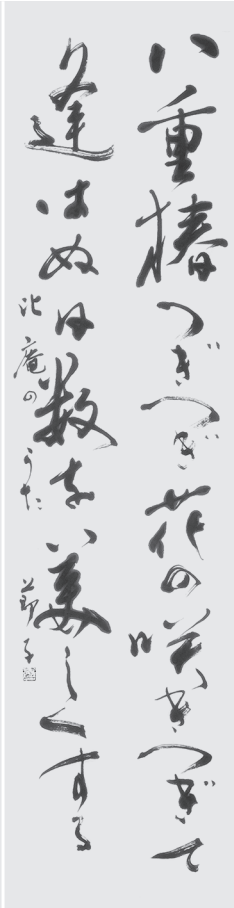 八重椿つぎつぎ花の咲きつぎて
逢はぬ日数を美しくする
比庵のうた 節子